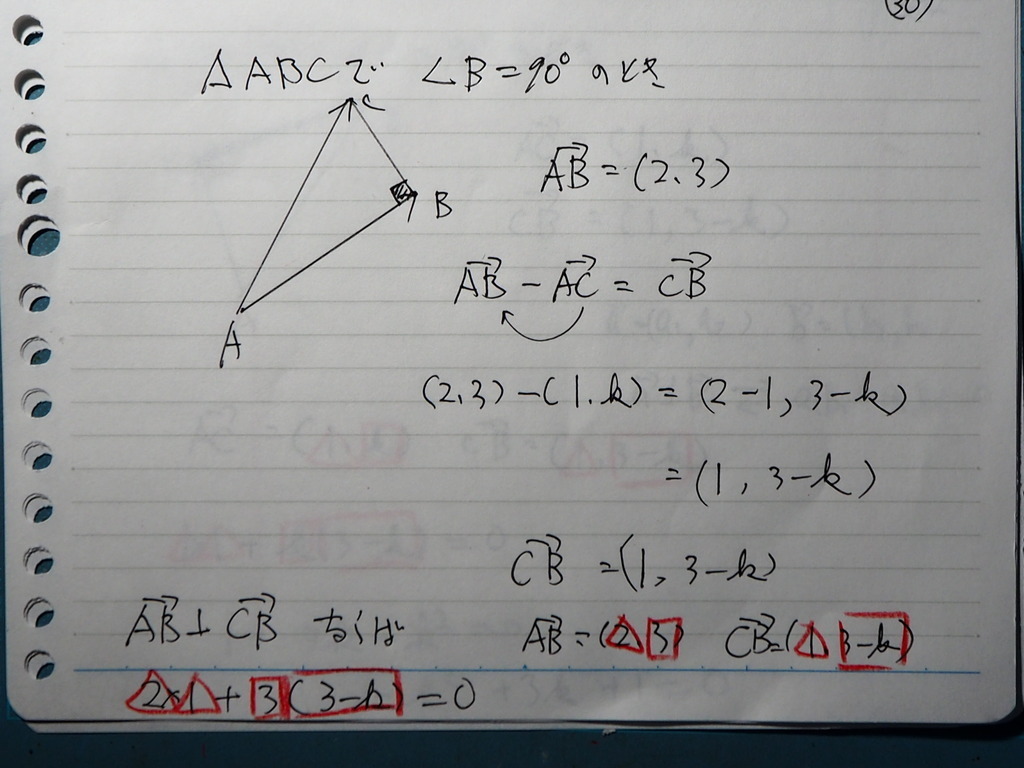 (30)
△ABCで ∠B=90°のとき
C
B
A
\overrightarrow{AB}=(2,3)
\overrightarrow{AB}-\overrightarrow{AC}=\overrightarrow{CB}
(2,3)-(1,k)=(2-1,3-k)
=(1,3-k)
\overrightarrow{CB}=(1,3-k)
\overrightarrow{AB}⊥\overrightarrow{CB} ならば
\overrightarrow{AB}=(2 3) \overrightarrow{CB}=(1 3-k)
2×1+3(3-k)=0